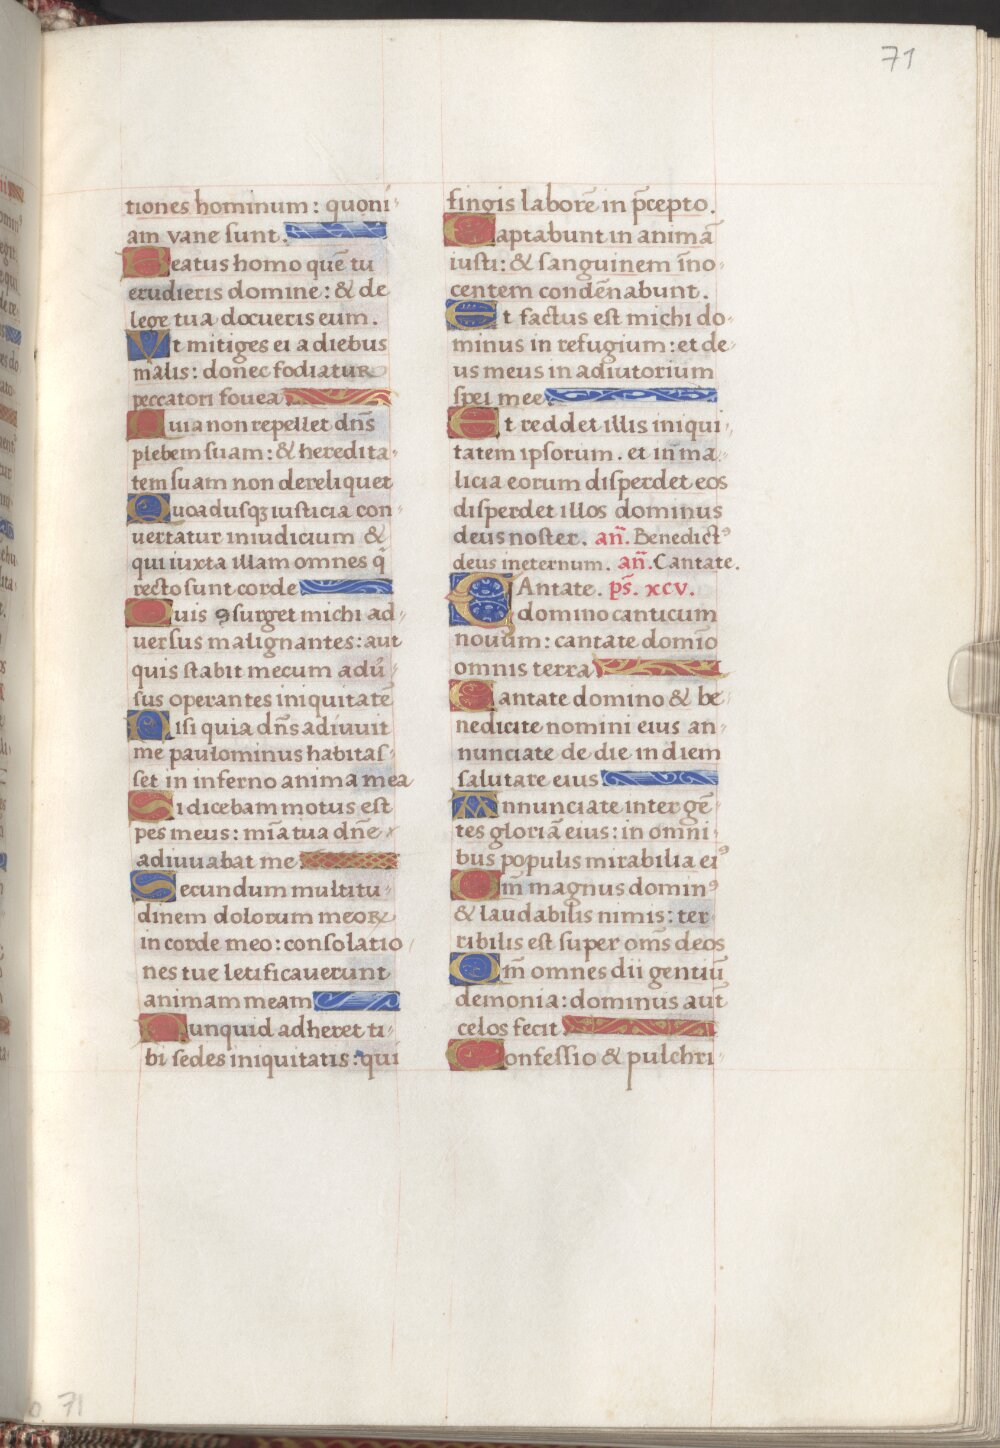 71
tiones hominum: quoni
am vane sunt.
Beatus homo quē tu
erudieris domine: & de
lege tua docueris eum.
Vt mitiges ei a diebus
malis: donec fodiatur
peccatori fovea
Quia non repellet dn̄s
plebem suam: & heredita
tem suam non derelinquet
Quoadusqꝫ iusticia con
vertatur in iudicium &
qui iuxta illam omnes q̄
recto sunt corde
Quis ꝯsurget michi ad
versus malignantes: aut
quis stabit mecum adū
sus operantes iniquitatē
Nisi quia dn̄s adiuvit
me paulominus habitas
set in inferno anima mea
Si dicebam motus est
pes meus: mīa tua dn̄e
adiuvabat me
Secundum multitu
dinem dolorum meoꝝ
in corde meo: consolatio
nes tue letificaverunt
animam meam
Nunquid adheret ti
bi sedes iniquitatis: qui
fingis laborē in p̄cepto.
Captabunt in animā
iusti: & sanguinem īno
centem condēnabunt.
Et factus est michi do
minus in refugium: et de
us meus in adiutorium
spei mee
Et reddet illis iniqui
tatem ipsorum. et in ma
licia eorum disperdet eos
disperdet illos dominus
deus noster. an̄. Benedictꝰ
deus ineternum. an̄. Cantate.
CAntate. ps̄. xcv.
domino canticum
novum: cantate domīo
omnis terra
Cantate domino & be
nedicite nomini eius an
nunciate de die in diem
salutare eius
Annunciate inter gē
tes gloriā eius: in omni
bus populis mirabilia eiꝰ
Qm̄ magnus dominꝰ
& laudabilis nimis: ter
ribilis est super om̄s deos
Qm̄ omnes dii gentiū
demonia: dominus aut̄
celos fecit
Confessio & pulchri
71